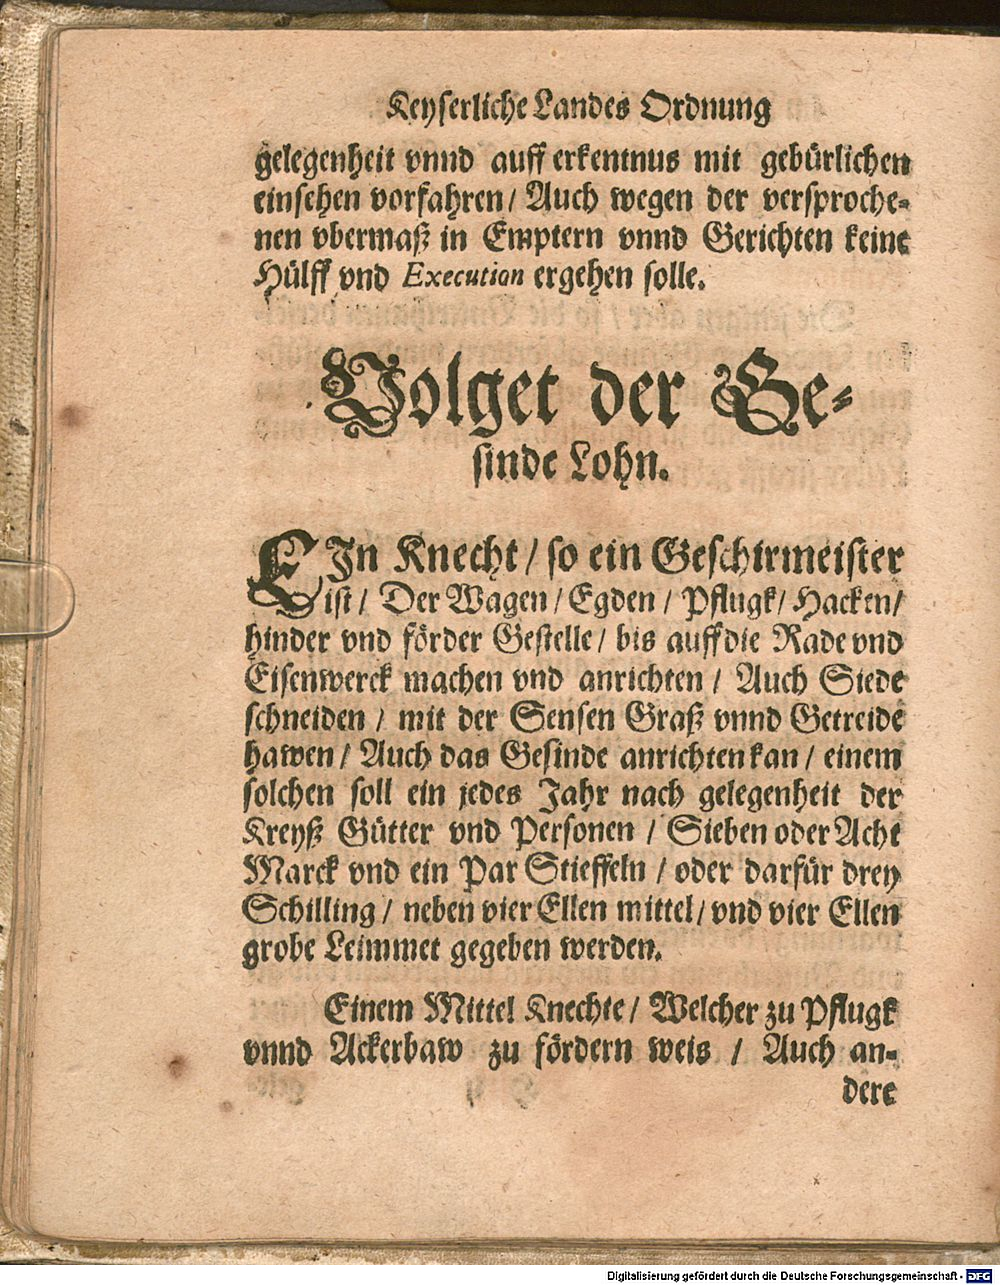 Keyserliche Landes Ordnung
gelegenheit vnnd auff erkentnus mit gebürlichen
einsehen vorfahren / Auch wegen der versproche-
nen vbermaß in Emptern vnnd Gerichten keine
Hülff vnd Execution ergehen solle.
Volget der Ge-
sinde Lohn.
EIn Knecht / so ein Geschirmeister
ist / Der Wagen / Egden / Pflugk / Hacken /
hinder vnd förder Gestelle / bis auff die Rade vnd
Eisenwerck machen vnd anrichten / Auch Siede
schneiden / mit der Sensen Graß vnnd Getreide
hawen / Auch das Gesinde anrichten kan / einem
solchen soll ein jedes Jahr nach gelegenheit der
Kreyß Gütter vnd Personen / Sieben oder Acht
Marck vnd ein Par Stieffeln / oder darfür drey
Schilling / neben vier Ellen mittel / vnd vier Ellen
grobe Leimmet gegeben werden.
Einem Mittel Knechte / Welcher zu Pflugk
vnnd Ackerbaw zu fördern weis / Auch an-
dere
Digitalisierung gefördert durch die Deutsche Forschungsgemeinschaft - DFG